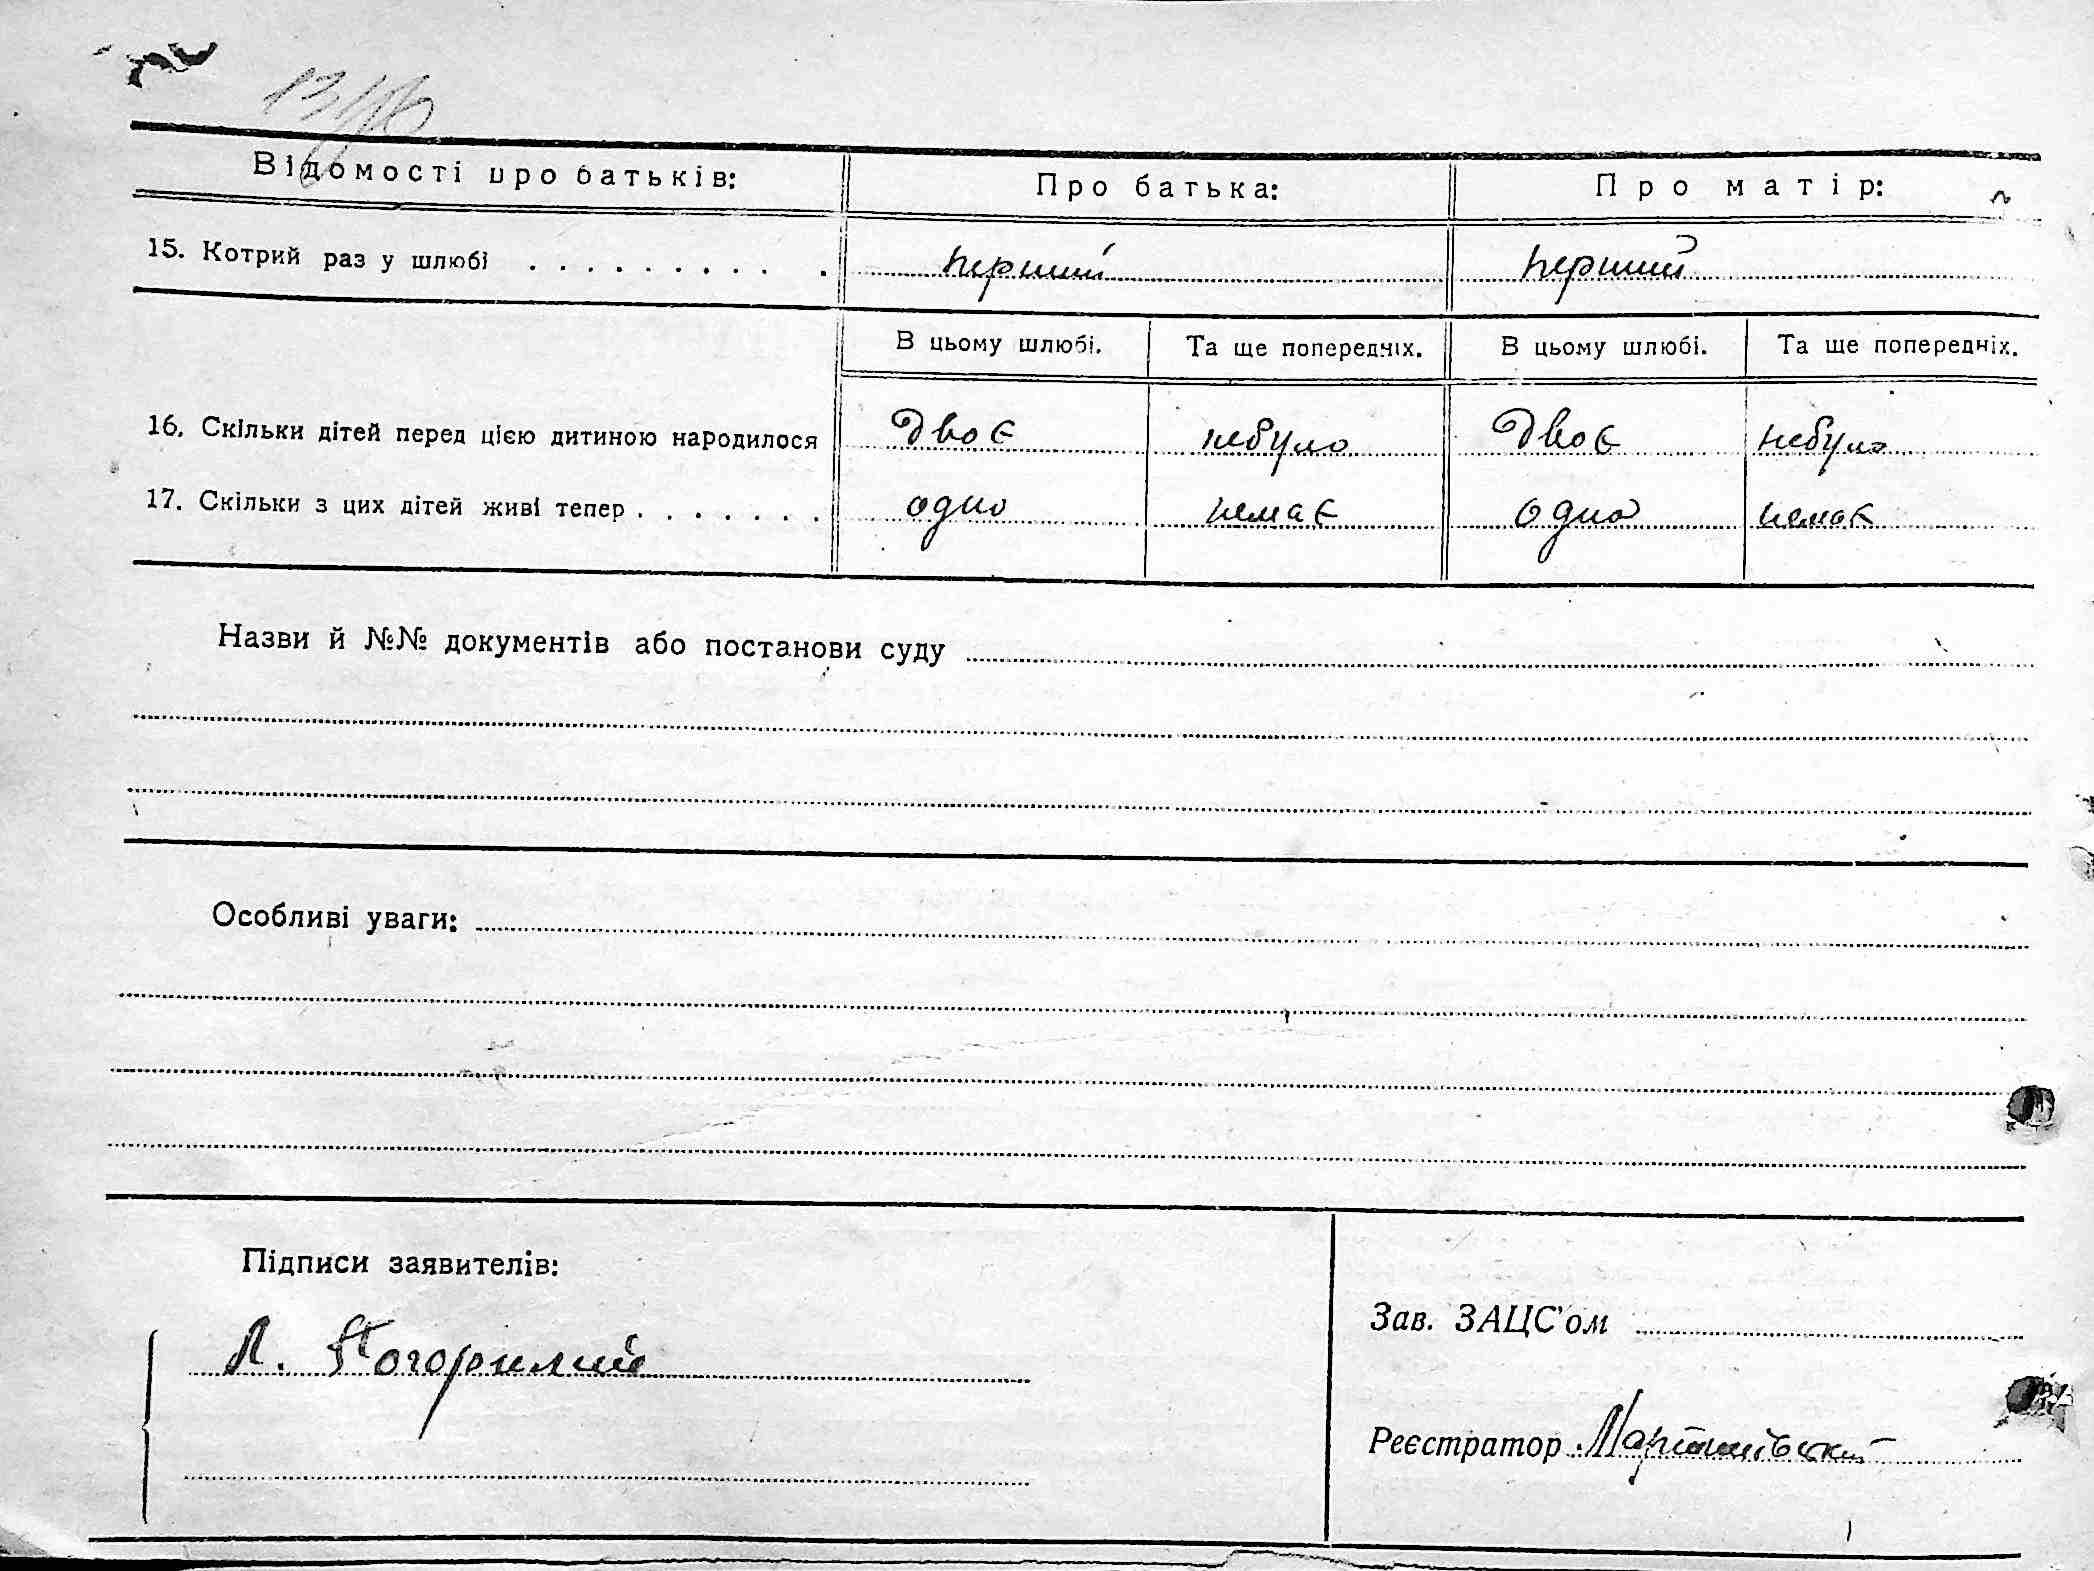 Відомості про батьків: Про батька: Про матір:
15. Котрий раз у шлюбі . . . . . . . . . . перший перший
В цьому шлюбі. Та ще попередніх. В цьому шлюбі. Та ще попередніх.
16. Скільки дітей перед цією дитиною народилося двоє небуло двоє небуло
17. Скільки з цих дітей живі тепер . . . . . . . одно немає одно немає
Назви й №№ документів або постанови суду
Особливі уваги:
Підписи заявителів:
Зав. ЗАЦС'ом
Л. Погорилий
Реєстратор